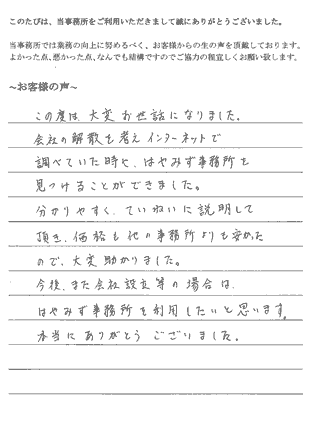 このたびは、当事務所をご利用いただきまして誠にありがとうございました。
当事務所では業務の向上に努めるべく、お客様からの生の声を頂戴しております。
よかった点、悪かった点、なんでも結構ですのでご協力の程宜しくお願い致します。
~お客様の声~
この度は、大変お世話になりました。
会社の解散を考えインターネットで
調べていた時に、はやみず事務所を
見つけることができました。
分かりやすく、ていねいに説明して
頂き、価格も他の事務所よりも安かった
ので、大変助かりました。
今後、また会社設立等の場合は、
はやみず事務所を利用したいと思います。
本当にありがとうございました。